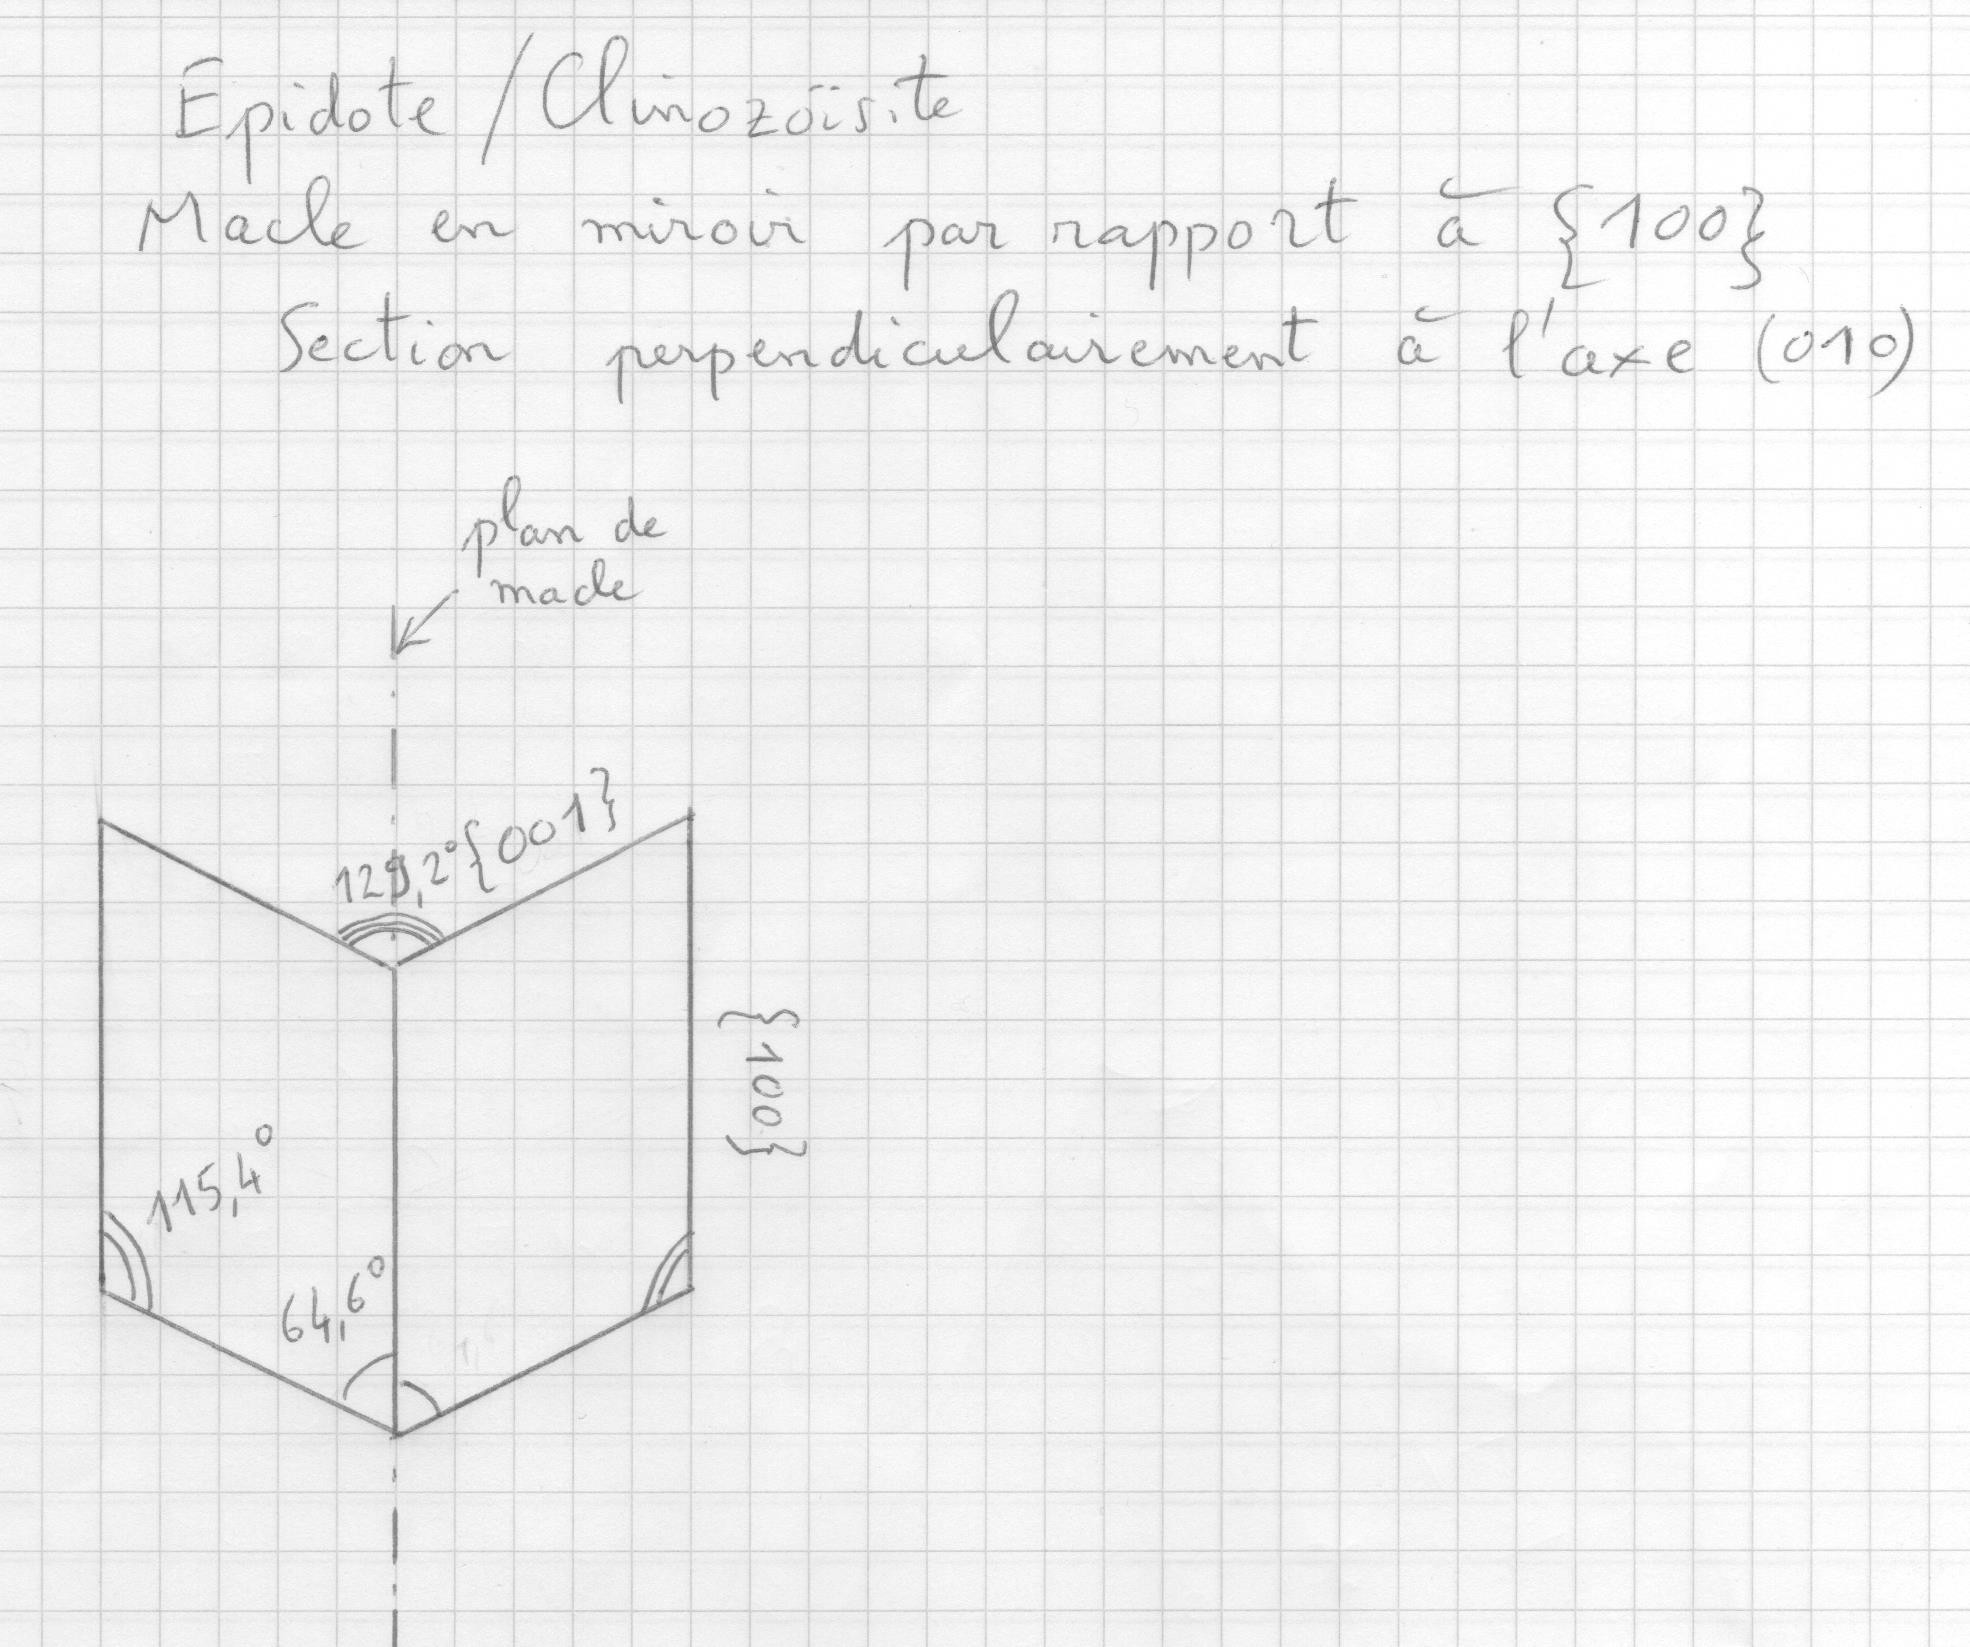 Epidote / Clinozoïsite
Macle en miroir par rapport à {100}
Section perpendiculairement à l'axe (010)
plan de
macle
129,2° {001}
{100}
115,4°
64,6°